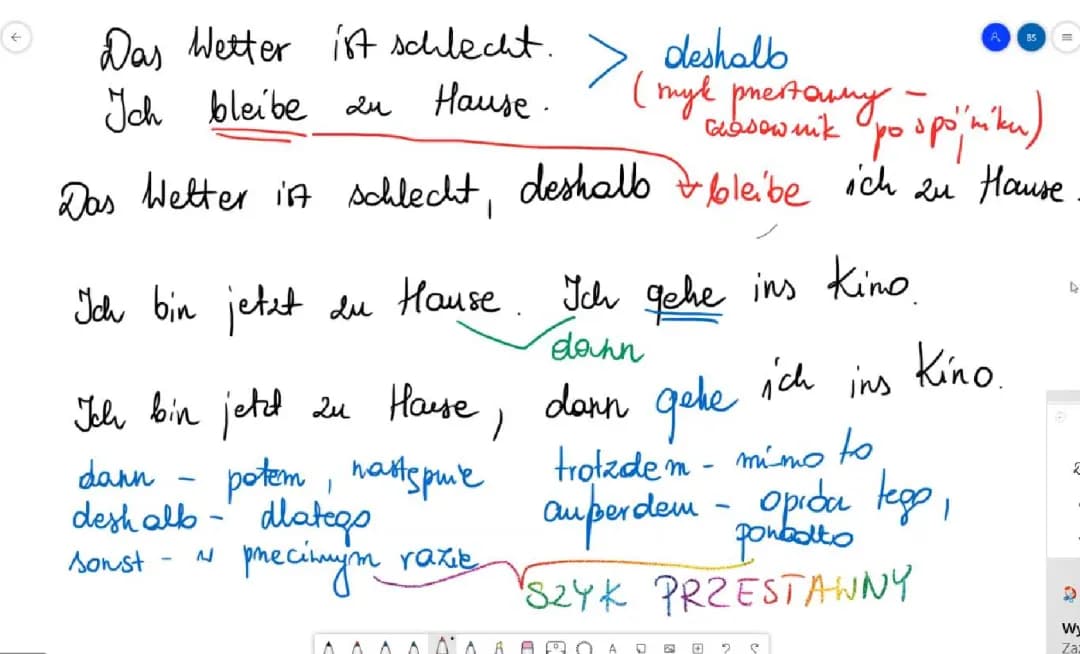 Das Wetter ist schlecht. > deshalb
Ich bleibe zu Hause. (szyk przestawny -
czasownik po spójniku)
Das Wetter ist schlecht, deshalb bleibe ich zu Hause.
Ich bin jetzt zu Hause. Ich gehe ins Kino.
dann
Ich bin jetzt zu Hause, dann gehe ich ins Kino.
dann - potem, następnie
deshalb - dlatego
sonst - w przeciwnym razie
trotzdem - mimo to
außerdem - oprócz tego,
ponadto
SZYK PRZESTAWNY
BS
Wy